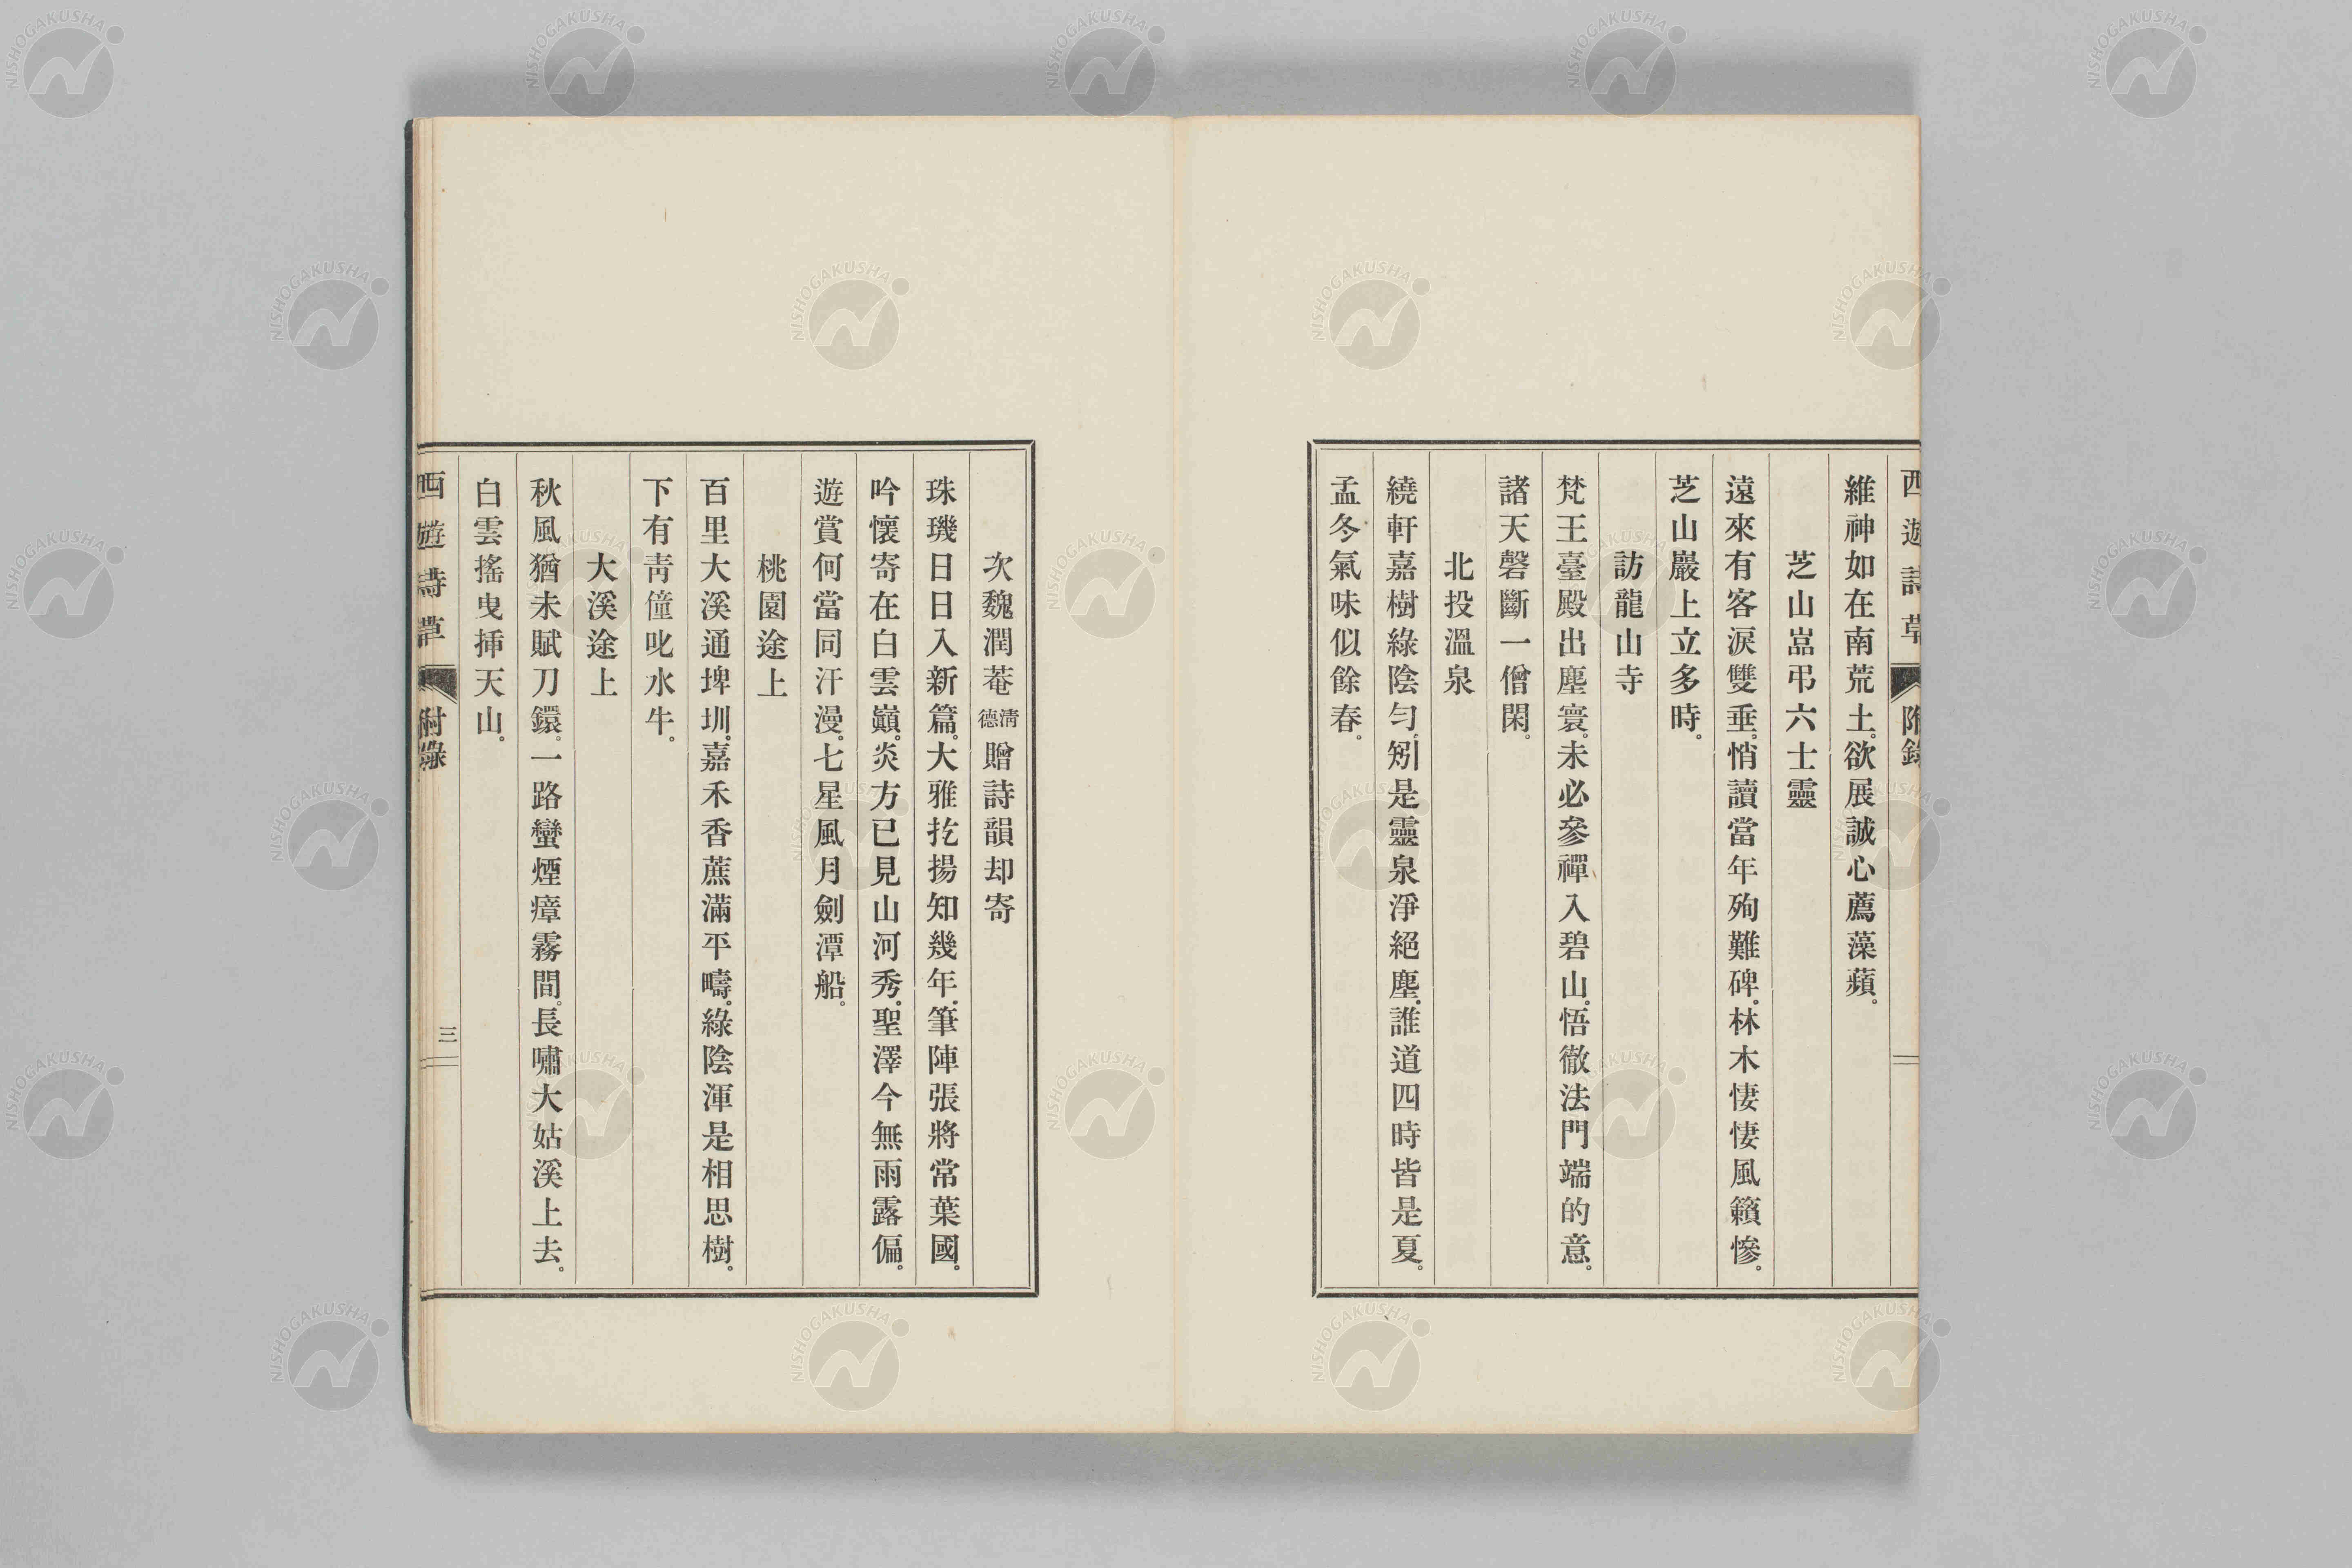 西遊詩草 附錄
維神如在南荒土。欲展誠心薦藻蘋。
芝山嵓弔六士靈
遠來有客淚雙垂。悄讀當年殉難碑。林木悽悽風籟慘。
芝山巖上立多時。
訪龍山寺
梵王臺殿出塵寰。未必參禪入碧山。悟徹法門端的意。
諸天磬斷一僧閑。
北投溫泉
繞軒嘉樹綠陰勻。矧是靈泉淨絕塵。誰道四時皆是夏。
孟冬氣味似餘春。
次魏潤菴清德贈詩韻却寄
珠璣日日入新篇。大雅扢揚知幾年。筆陣張將常葉國。
吟懷寄在白雲巓。炎方已見山河秀。聖澤今無雨露偏。
遊賞何當同汗漫。七星風月劍潭船。
桃園途上
百里大溪通埤圳。嘉禾香蔗滿平疇。綠陰渾是相思樹。
下有靑僮叱水牛。
大溪途上
秋風猶未賦刀鐶。一路蠻煙瘴霧間。長嘯大姑溪上去。
白雲搖曳揷天山。
西遊詩草 附錄 三
NISHOGAKUSHA